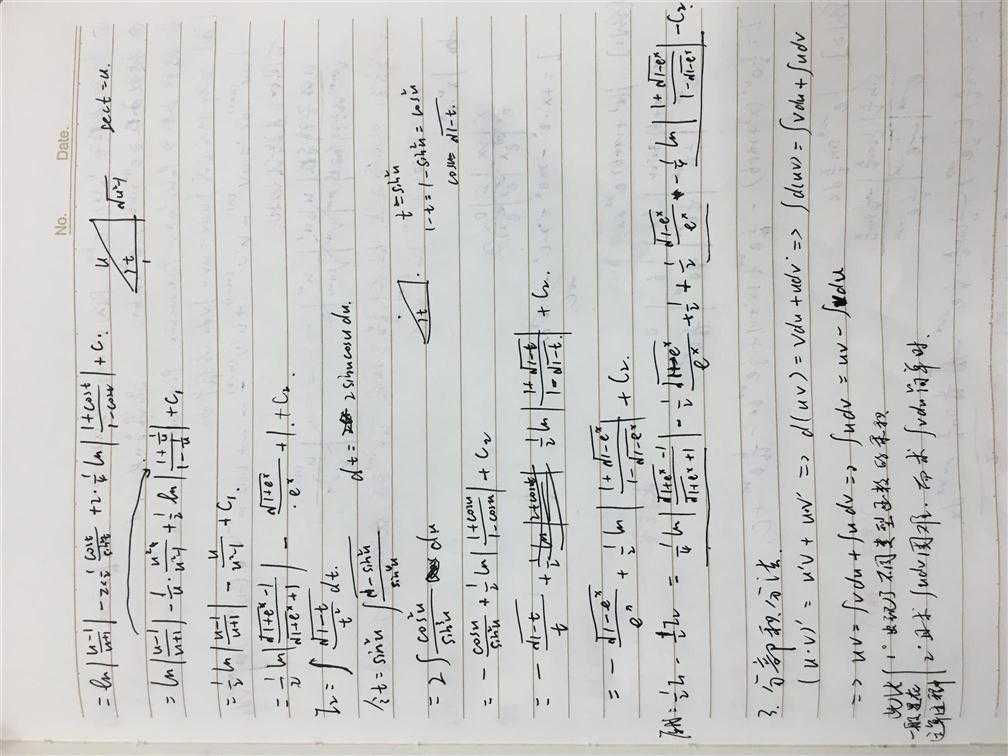 No. Date.
= ln|(u-1)/(u+1)| - 2·(1/2)·cost/sin²t + 2·(1/4) ln|(1+cost)/(1-cost)| + C₁ u √(u²-1) t 1 sect=u.
= ln|(u-1)/(u+1)| - (1/u)·u²/(u²-1) + (1/2) ln|(1+1/u)/(1-1/u)| + C₁
= (1/2) ln|(u-1)/(u+1)| - u/(u²-1) + C₁
= (1/2) ln|(√(1+eˣ)-1)/(√(1+eˣ)+1)| - √(1+eˣ)/eˣ + C₂
I₂ = ∫ √(1-t)/t² dt.
令 t=sin²u ∫ √(1-sin²u)/sin⁴u dt = 2sinucosu du. t=sin²u
1-t=1-sin²u=cos²u
= 2∫ cos²u/sin³u du cosu=√(1-t).
= - cosu/sin²u + (1/2) ln|(1+cosu)/(1-cosu)| + C₂
= - √(1-t)/t + (1/2) ln|(1+√(1-t))/(1-√(1-t))| + C₂
= - √(1-eˣ)/eˣ + (1/2) ln|(1+√(1-eˣ))/(1-√(1-eˣ))| + C₂
原式=(1/2)I₁ - (1/2)I₂ = (1/4) ln|(√(1+eˣ)-1)/(√(1+eˣ)+1)| - (1/2) √(1+eˣ)/eˣ + (1/2) √(1-eˣ)/eˣ - (1/4) ln|(1+√(1-eˣ))/(1-√(1-eˣ))| - C₂
3. 分部积分法
(u·v)' = u'v + uv' => d(uv) = vdu + udv => ∫d(uv) = ∫vdu + ∫udv
=> uv = ∫vdu + ∫udv => ∫udv = uv - ∫vdu
此法 1° 出现了不同类型函数的乘积
一般是在 2° 求∫udv困难. 而求∫vdu简单时.